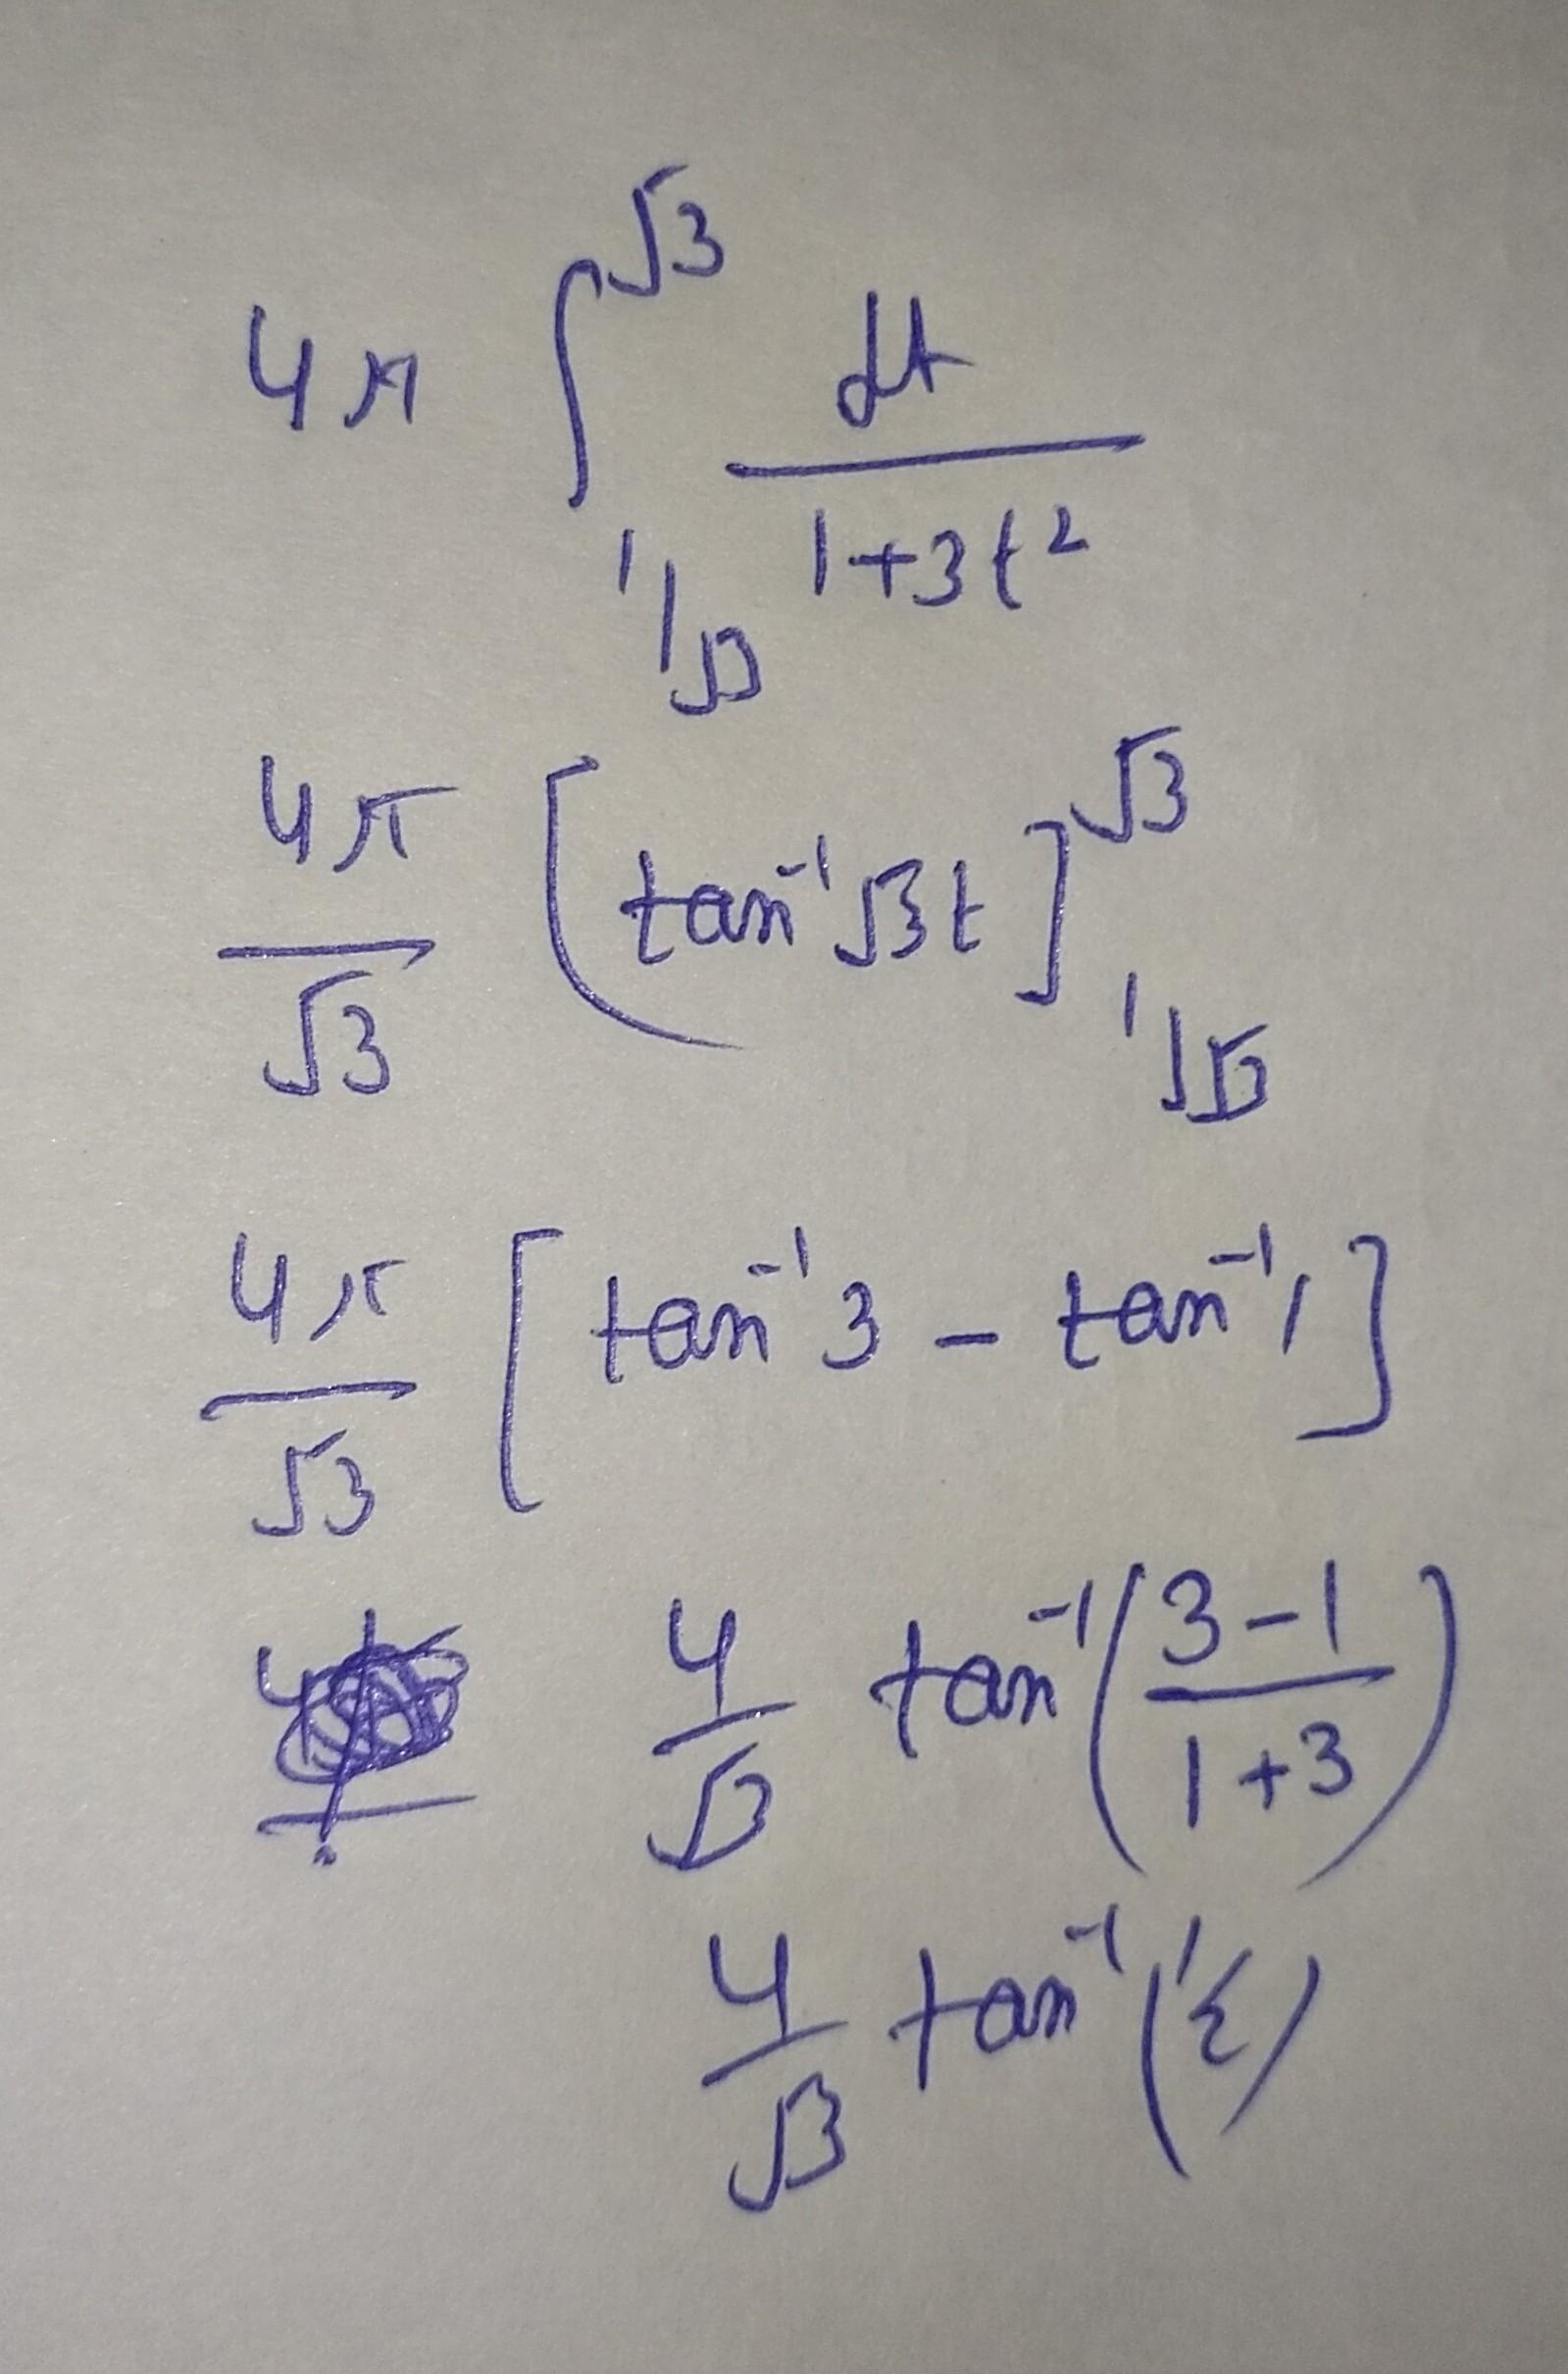 4π ∫_{1/√3}^{√3} dt / (1+3t²)
4π/√3 [tan⁻¹ √3t]_{1/√3}^{√3}
4π/√3 [tan⁻¹ 3 − tan⁻¹ 1]
4/√3 tan⁻¹ ((3−1)/(1+3))
4/√3 tan⁻¹ (1/2)